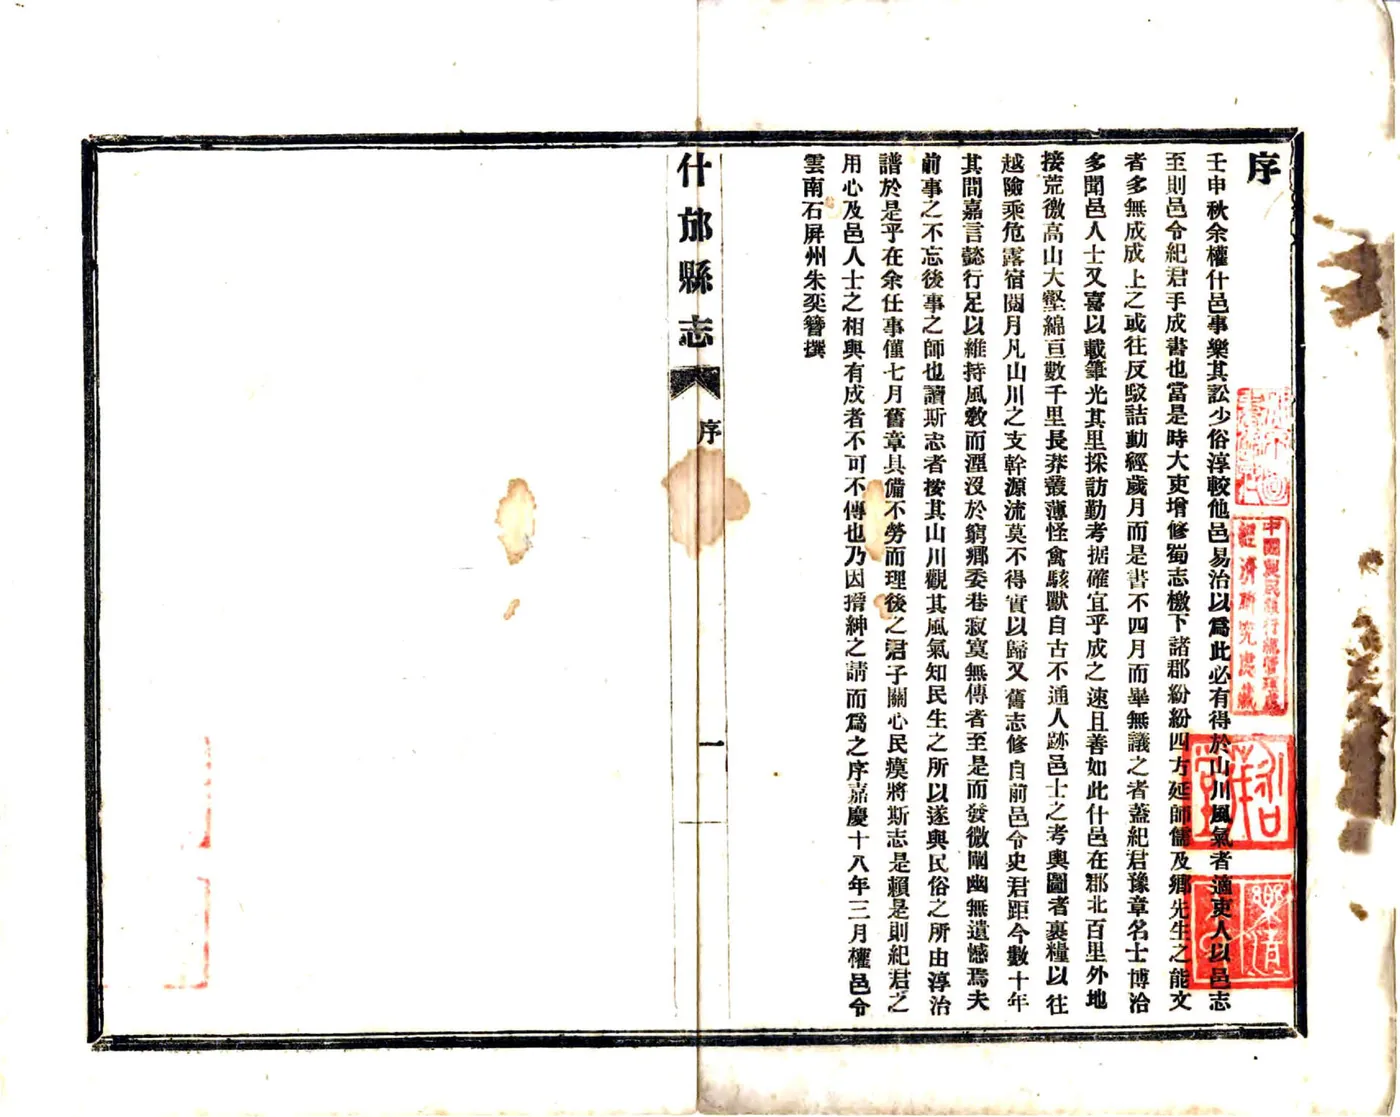 序
壬申秋余權什邑事樂其訟少俗淳較他邑易治以為此必有得於山川風氣者適吏人以邑志
至則邑令紀君手成書也當是時大吏增修蜀志檄下諸郡紛紛四方延師儒及鄉先生之能文
者多無成成上之或往反駁詰動經歲月而是書不四月而畢無議之者蓋紀君豫章名士博洽
多聞邑人士又喜以載筆光其里採訪勤考据確宜乎成之速且善如此什邑在郡北百里外地
接荒徼高山大壑綿亘數千里長莽叢薄怪禽駭獸自古不通人跡邑士之考輿圖者裹糧以往
越險乘危露宿閱月凡山川之支幹源流莫不得實以歸又舊志修自前邑令史君距今數十年
其間嘉言懿行足以維持風敎而湮沒於窮鄉委巷寂寞無傳者至是而發微闡幽無遺憾焉夫
前事之不忘後事之師也讀斯志者按其山川觀其風氣知民生之所以遂與民俗之所由淳治
譜於是乎在余任事僅七月舊章具備不勞而理後之君子關心民瘼將斯志是賴是則紀君之
用心及邑人士之相與有成者不可不傳也乃因搢紳之請而為之序嘉慶十八年三月權邑令
雲南石屏州朱奕簪撰
什邡縣志
序
一
中國農民銀行總管理處
經濟研究處藏